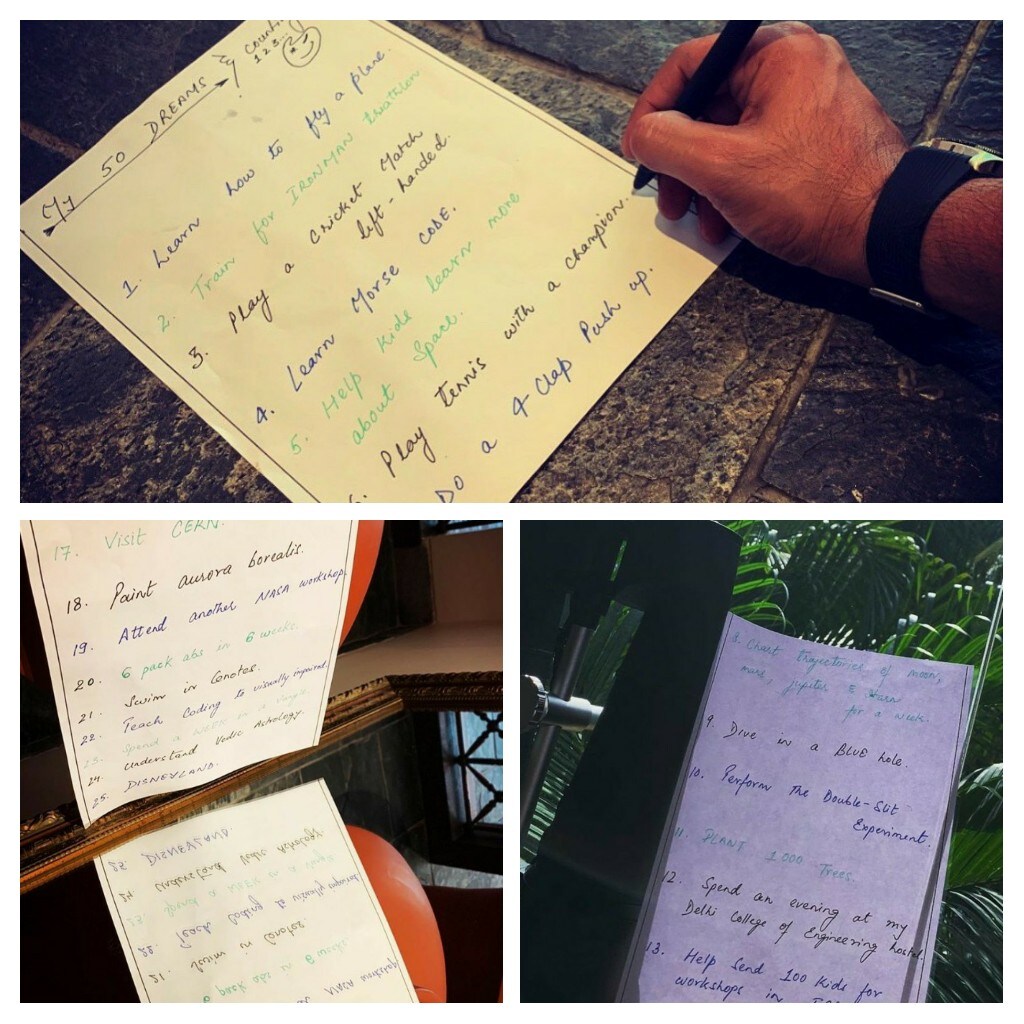 My 50 DREAMS &
1 2 3...
1. Learn how to fly a plane.
2. Train for IRONMAN triathlon
3. Play a cricket Match
left-handed.
4. Learn Morse CODE.
5. Help kids learn more
about Space.
6. Play tennis with a champion.
Do a 4 Clap Push up.
17. Visit CERN.
18. Paint aurora borealis.
19. Attend another NASA workshop.
20. 6 pack abs in 6 weeks.
21. Swim in Cenotes.
22. Teach Coding to visually impaired.
23. Spend a week in a
24. Understand Vedic Astrology.
25. DISNEYLAND.
25. DISNEYLAND.
24. Understand Vedic Astrology.
23. Spend a week in a
22. Teach Coding to visually impaired.
21. Swim in Cenotes.
6 pack abs in 6 weeks.
NASA workshop
8. Chart trajectories of moon,
mars, jupiter &
for a week.
9. Dive in a BLUE hole.
10. Perform the Double-Slit
Experiment.
11. PLANT 1000
Trees.
12. Spend an evening at my
Delhi College of Engineering hostel.
13. Help Send 100 Kids for
workshops in